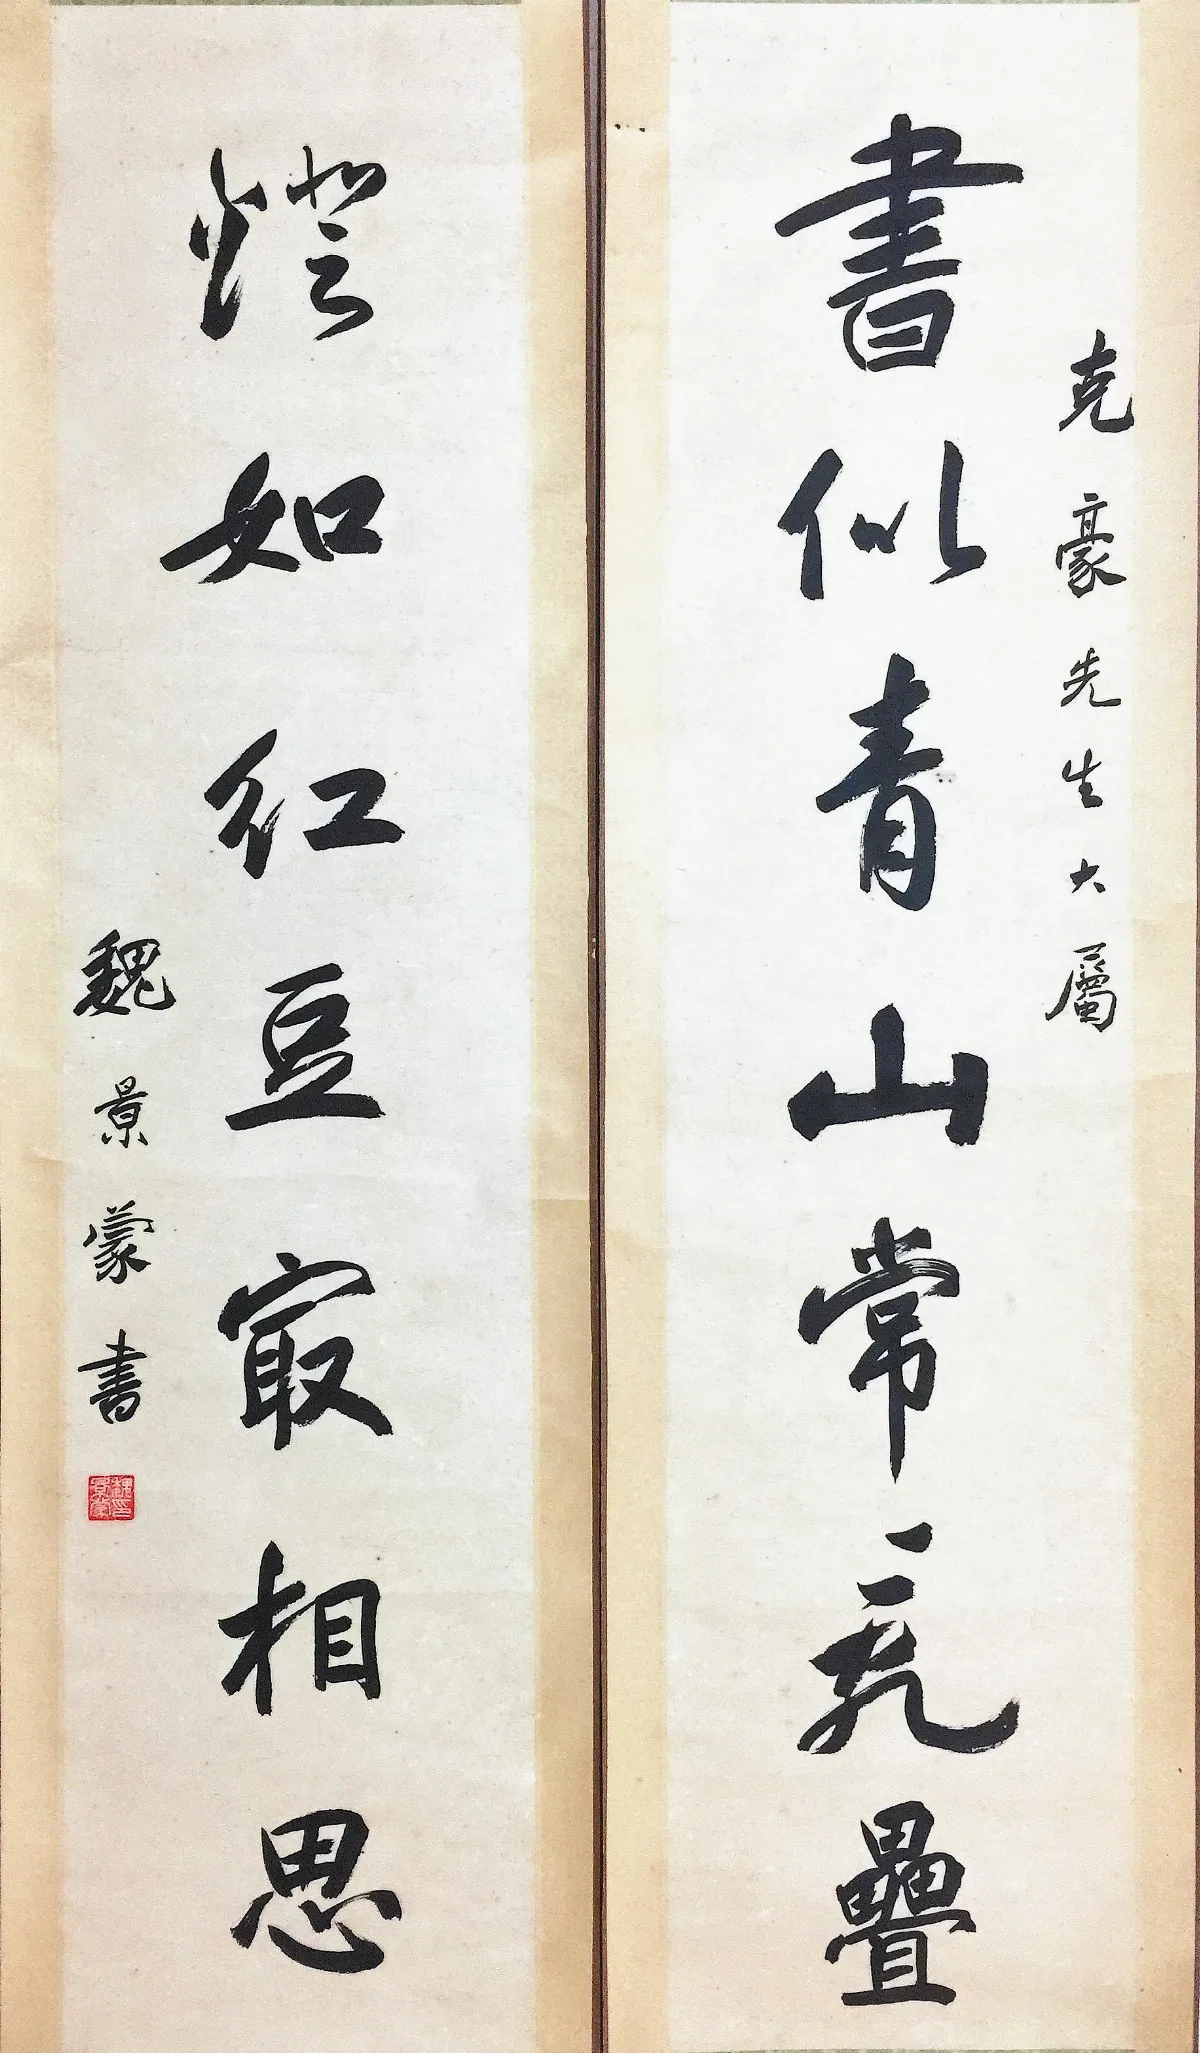 克豪先生大屬
書似青山常亂疊
燈如紅豆最相思
魏景蒙書
魏景蒙印